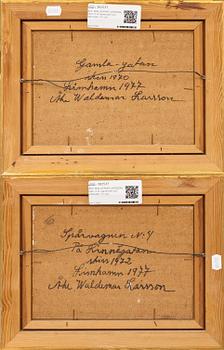 Gamla-gatan
skiss 1970
Limhamn 1977
Åke Waldemar Larsson
Spårvagnen N:4
På Linnégatan
skiss 1972
Limhamn 1977
Åke Waldemar Larsson